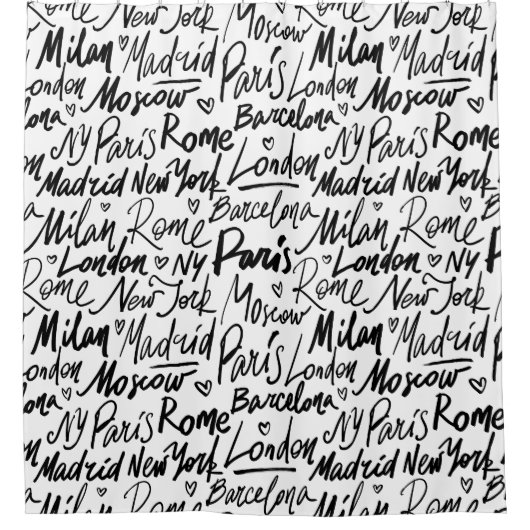 Rome New York Moscow Rome New York
Milan Madrid Paris Milan Madrid
London Moscow London Moscow
Barcelona
ona NY Paris Rome NY Paris Rome
London
Madrid New York Madrid New York
Barcelona
Milan Rome Milan Rome
London NY Paris London NY
Rome New York Moscow Rome New York
Milan Madrid Paris Milan Madrid
London Moscow London Moscow
Barcelona
ona NY Paris Rome NY Paris Rome
London
Madrid New York Madrid New York
Barcelona
Milan Rome Milan Rome